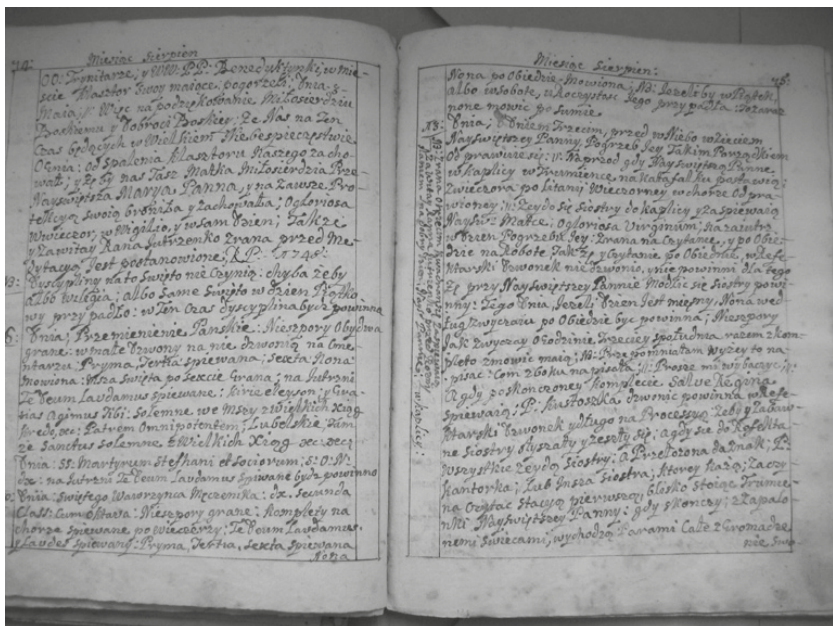 74:
Miesiąc Sierpien
OO: Trynitarze, y WW: PP: Benedyktynki, w mie-
scie Klasztor swoy maiące, pogorzeli; Dnia: 3:
Maia, Więc na podziękowanie Miłosierdziu
Boskiemu y Dobroci Boskiey: że Nas na Ten
Czas będących w Wielkiem Niebespieczeństwie
Ognia: od Spalenia Klasztoru Naszego zacho-
wał; y że by nas Taż Matka Miłosierdzia Prze-
nayświętsza Marya Panna, y na Zawsze Pro-
tekcyą swoią broniła y Zachowała; Ogloriosa
Wwieczor, w Wigilią, y w sam Dzien; Także
y Zawitay Rana Jutrzenko Zrana przed Me-
dytacyą Jest postanowione, R.P: 1748:
Dyscypliny na to Swięto nie Czynią: chyba że by
albo Wilegia; albo Same Swięto w dzien Piątko-
wy przy padło: w Ten Czas dyscyplina być powinna
6: Dnia, Przemienienie Panskie: Nieszpory Obydwa
grane: w małe Dzwony na nie dzwonią na Cme-
ntarzu: Pryma, Tertia śpiewana; Sexta Nona:
mowiona: Msza święta po Sexcie Grana; na Jutrzni
Te Deum Laudamus śpiewane: Kirie eleyson: y Gra-
tias Agimus Tibi: Solemne we Mszy z Wielkich Xiąg
Credo, xc: Patrem Omnipotentem, Lubelskie, Tam
że Sanctus solemne z Wielkich Xiąg
Dnia: SS: Martyrum Stephani et Sociorum; S: O: N:
dx: na Jutrzni Te Deum Laudamus śpiwane bydz powinno
Dnia: świętego Wawrzynca Męczennika: dx. Secunda
Class: Cum oktava: Nieszpory grane: Komplety na
chorze śpiewane po wieczerzy: Te Deum Laudamus.
Laudes śpiewany: Pryma, Tertia, Sexta śpiewana
Nona
Miesiąc Sierpien:
75:
Nona po Obiedzie Mowiona; NB: Jeżeliby w Piątek,
albo w sobotę, Uroczystość Jego przy padła: To zaraz
none mowić po sumie
Dnia; Dniem Trzecim, przed w Niebo wzięciem
Nayświętszey Panny, Pogrzeb Jey Takim Porządkiem
Odprawuie się: Naprzod gdy Nayświętszą Pannę
w Kaplicy w Trumience na Katafalku postawią:
Zwieczora po Litanij Wieczorney w chorze Od pra-
wioney: Zeydą się Siostry do Kaplicy y Zaśpiewaią
Nayśw: Matce, Ogloriosa Virginum; Nazaiutrz
w Dzien Pogrzebu Jey: Zrana na Czytanie, y po Obie-
dzie na Robote Jak y Czytanie po Obiednie, w Refe-
ktarski Dzwonek nie dzwonią, y nie powinni Dla tego
że przy Nayświętszey Pannie Modlic się Siostry powi-
nny: Tego Dnia, Jeżeli Dzen Jest mięsny, Nona we-
dług Zwyczaiu po Obiedzie być powinna; Nieszpory
Jak zwyczay Ogodzinie Trzeciey społudnia razem z kom-
pletą zmowić maią; NB: Przepomniałam Wyżey to na-
pisać: Com z boku na pisała: Proszę mi wybaczyć:
A gdy po skonczoney Komplecie Salve Regina
śpiewaią: P: Kustoszka dzwonić powinna w Refe-
ktarski Dzwonek y długo na Processyą Zeby y Zabaw-
ne Siostry słyszały y zeszły się; a gdy sie do Refekta-
Wszystkie Zeydą Siostry: A Przełożona da Znak, P:
Kantorka, Lub Insza Siostra, ktorey każą; Zaczy-
na Czytać Stacyą pierwszą, blisko stoiąc Trumie-
nki Nayświętszey Panny: gdy skonczy; z Zapalo-
nemi świecami, wychodzą Parami Całe Zgromadze-
nie